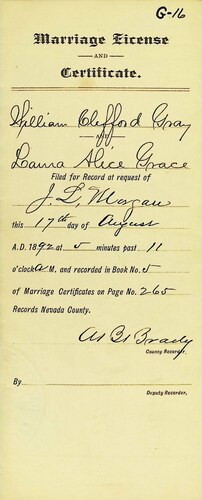 G-16
Marriage License
AND
Certificate.
William Clifford Gray
and
Laura Alice Grace
Filed for Record at request of
J. L. Morgan
this 17th day of August
A.D. 1892 at 5 minutes past 11
o'clock A M, and recorded in Book No. 5
of Marriage Certificates on Page No. 265
Records Nevada County.
Brady
County Recorder.
By
Deputy Recorder.